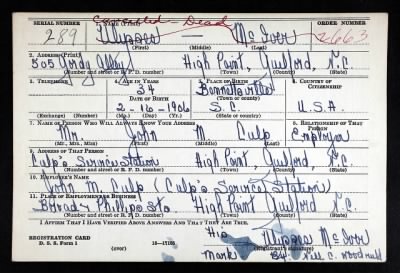 Cancelled - Dead
SERIAL NUMBER 1. NAME (Print) ORDER NUMBER
289 — McIver 2663
(First) (Middle) (Last)
2. ADDRESS (Print)
505 Gordy Alley High Point, Guilford, N.C.
(Number and street or R. F. D. number) (Town) (County) (State)
3. TELEPHONE 4. AGE IN YEARS 5. PLACE OF BIRTH 6. COUNTRY OF CITIZENSHIP
34 Bennettsville
DATE OF BIRTH (Town or county)
2-16-1906 S.C. U.S.A.
(Exchange) (Number) (Mo.) (Day) (Yr.) (State or country)
7. NAME OF PERSON WHO WILL ALWAYS KNOW YOUR ADDRESS 8. RELATIONSHIP OF THAT PERSON
Mr. John M Culp Employer
(Mr., Mrs., Miss) (First) (Middle) (Last)
9. ADDRESS OF THAT PERSON
Culp's Service Station High Point, Guilford, N.C.
(Number and street or R. F. D. number) (Town) (County) (State)
10. EMPLOYER'S NAME
John M. Culp (Culp's Service Station)
11. PLACE OF EMPLOYMENT OR BUSINESS
Broad & Phillips Sts. High Point, Guilford, N.C.
(Number and street or R. F. D. number) (Town) (County) (State)
I AFFIRM THAT I HAVE VERIFIED ABOVE ANSWERS AND THAT THEY ARE TRUE.
REGISTRATION CARD
D. S. S. Form 1 16—17105
His McIver
Mark (Registrant's signature)
By C. Woodruff